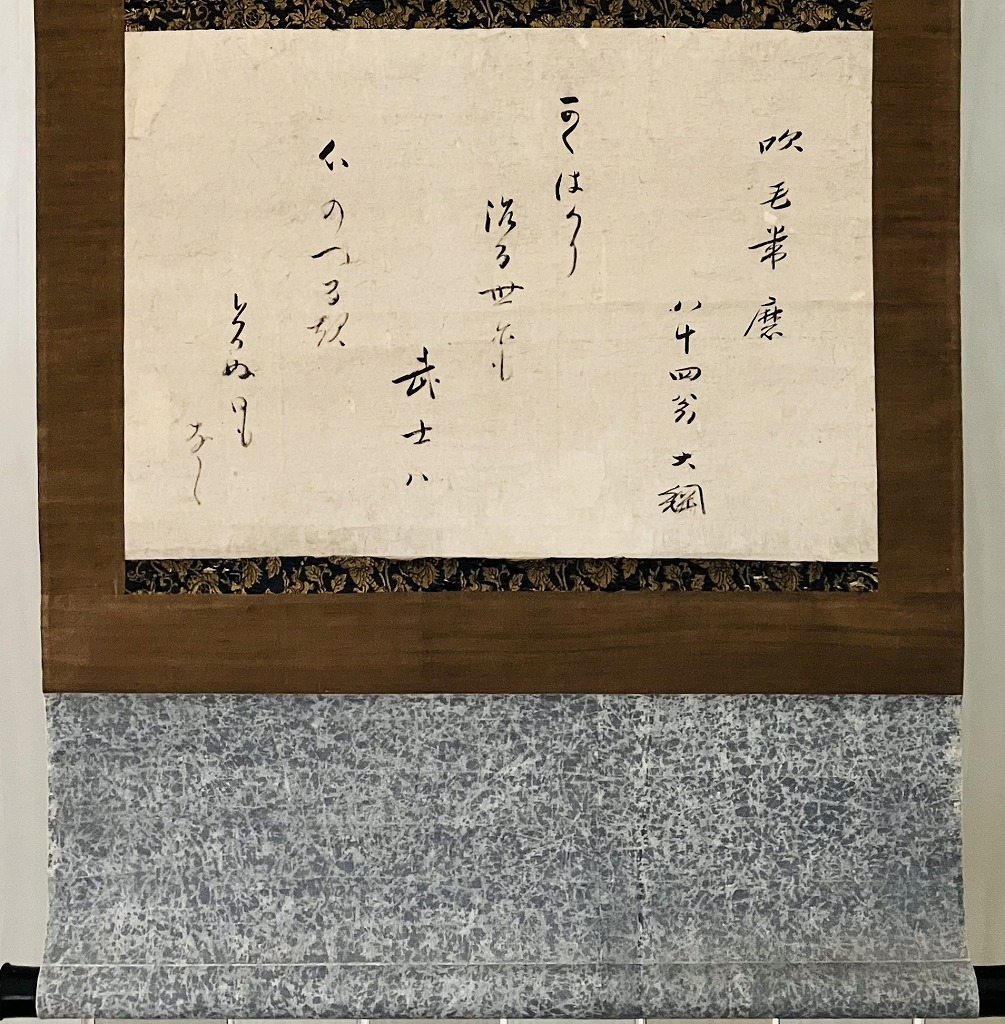 吹毛常磨
八十四翁 大綱
かくはかり
治る世にも
武士ハ
心のつるき
とかぬ日も
なし